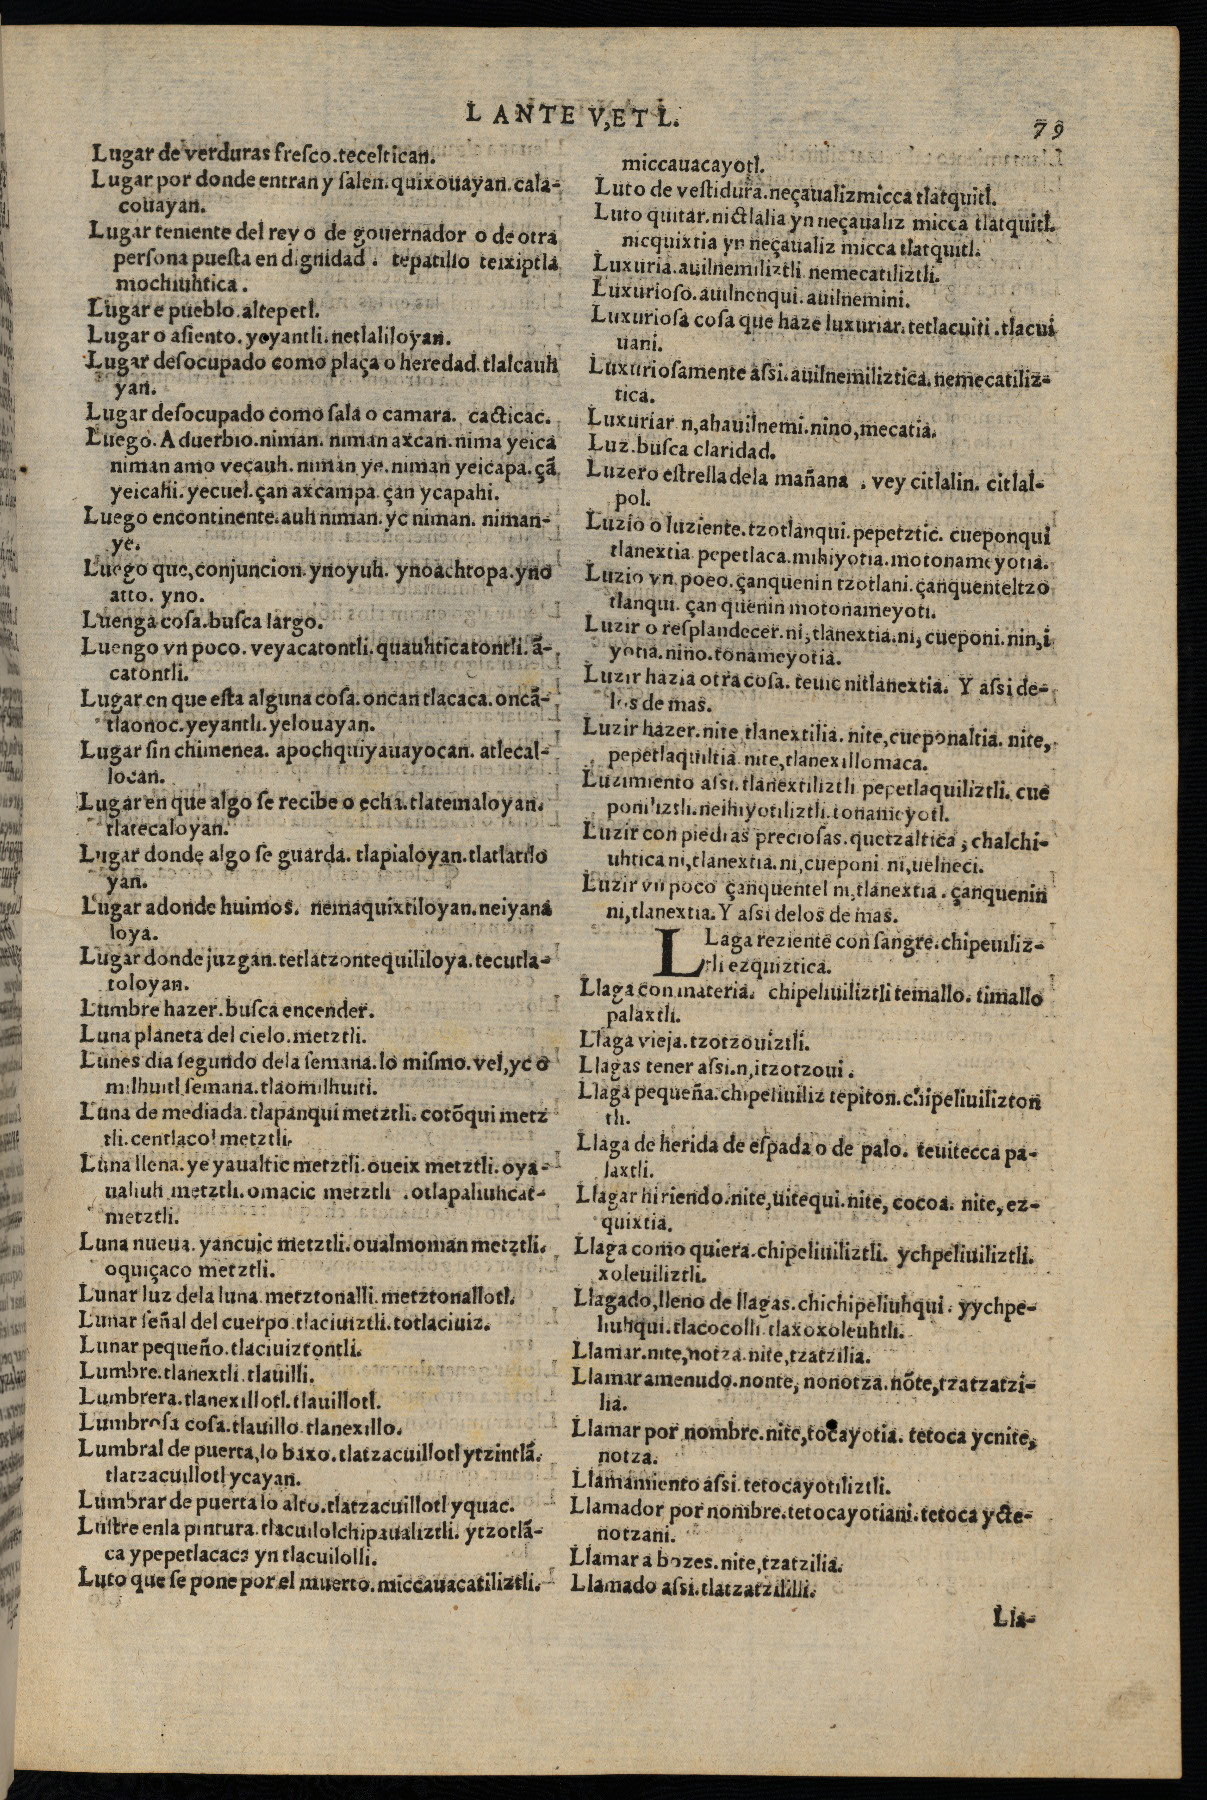 L ANTE V, ET L.
79
Lugar de verduras freſco. teceltican.
Lugar por donde entran y ſalen. quixouayan. cala-
couayan.
Lugar teniente del rey o de gouernador o de otra
perſona pueſta en dignidad. tepatillo teixiptla
mochiuhtica.
Lugar e pueblo. altepetl.
Lugar o aſiento. yeyantli. netlaliloyan.
Lugar deſocupado como plaça o heredad. tlalcauh
yan.
Lugar deſocupado como ſala o camara. cacticac.
Luego. Aduerbio. niman. niman axcan. nima yeica
niman amo vecauh. niman ye. niman yeicapa. çã
yeicahi. yecuel. çan axcampa. çan ycapahi.
Luego encontinente. auh niman. yc niman. niman-
ye.
Luego que, conjuncion. ynoyuh. ynoachtopa. yno
atto. yno.
Luenga coſa. buſca largo.
Luengo vn poco. veyacatontli. quauhticatontli. ã-
catontli.
Lugar en que eſta alguna coſa. oncan tlacaca. oncã-
tlaonoc. yeyantli. yelouayan.
Lugar ſin chimenea. apochquiyauayocan. atlecal-
locan.
Lugar en que algo ſe recibe o echa. tlatemaloyan.
tlatecaloyan.
Lugar donde algo ſe guarda. tlapialoyan. tlatlatilo
yan.
Lugar adonde huimos. nemaquixtiloyan. neiyana
loya.
Lugar donde juzgan. tetlatzontequililoya. tecutla-
toloyan.
Lumbre hazer. buſca encender.
Luna planeta del cielo. metztli.
Lunes dia ſegundo dela ſemana. lo miſmo. vel, yc o
milhuitl ſemana. tlaomilhuiti.
Luna de mediada. tlapanqui metztli. cotõqui metz
tli. centlacol metztli.
Luna llena. ye yaualtic metztli. oueix metztli. oya-
ualiuh metztli. omacic metztli. otlapaliuhcat-
metztli.
Luna nueua. yancuic metztli. oualmoman metztli.
oquiçaco metztli.
Lunar luz dela luna. metztonalli. metztonallotl.
Lunar ſeñal del cuerpo. tlaciuiztli. totlaciuiz.
Lunar pequeño. tlaciuiztontli.
Lumbre. tlanextli. tlauilli.
Lumbrera. tlanexillotl. tlauillotl.
Lumbroſa coſa. tlauillo. tlanexillo.
Lumbral de puerta, lo baxo. tlatzacuillotl ytzintlã.
tlatzacuillotl ycayan.
Lumbrar de puerta lo alto. tlatzacuillotl yquac.
Luſtre enla pintura. tlacuilolchipaualiztli. ytzotlã-
ca ypepetlacaca yn tlacuilolli.
Luto que ſe pone por el muerto. miccauacatiliztli.
miccauacayotl.
Luto de veſtidura. neçaualizmicca tlatquitl.
Luto quitar. nictlalia yn neçaualiz micca tlatquitl.
nicquixtia yn neçaualiz micca tlatquitl.
Luxuria. auilnemiliztli. nemecatiliztli.
Luxurioſo. auilnenqui. auilnemini.
Luxurioſa coſa que haze luxuriar. tetlacuiti. tlacui
uani.
Luxurioſamente aſsi. auilnemiliztica. nemecatiliz-
tica.
Luxuriar n, ahauilnemi. nino, mecatia.
Luz. buſca claridad.
Luzero eſtrella dela mañana. vey citlalin. citlal-
pol.
Luzio o luziente. tzotlanqui. pepetztic. cueponqui
tlanextia. pepetlaca. mihiyotia. motonameyotia.
Luzio vn poco. çanquenin tzotlani. çanquenteltzo
tlanqui. çan quenin motonameyoti.
Luzir o reſplandecer. ni, tlanextia. ni, cueponi. nin, i
yotia. nino. tonameyotia.
Luzir hazia otra coſa. teuic nitlanextia. Y aſsi de-
los de mas.
Luzir hazer. nite, tlanextilia. nite, cueponaltia. nite,
pepetlaquiltia. nite, tlanexillomaca.
Luzimiento aſsi. tlanextiliztli. pepetlaquiliztli. cue
poniliztli. neihiyotiliztli. tonameyotl.
Luzir con piedras precioſas. quetzaltica, chalchi-
uhtica ni, tlanextia. ni, cueponi. ni, uelneci.
Luzir vn poco çanquentel ni, tlanextia. çanquenin
ni, tlanextia. Y aſsi delos de mas.
LLaga reziente con ſangre. chipeuiliz-
tli ezquiztica.
Llaga con materia. chipeliuiliztli temallo. timallo
palaxtli.
Llaga vieja. tzotzouiztli.
Llagas tener aſsi. n, itzotzoui.
Llaga pequeña. chipeliuiliz tepiton. chipeliuilizton
tli.
Llaga de herida de eſpada o de palo. teuitecca pa-
laxtli.
Llagar hiriendo. nite, uitequi. nite, cocoa. nite, ez-
quixtia.
Llaga como quiera. chipeliuiliztli. ychpeliuiliztli.
xoleuiliztli.
Llagado, lleno de llagas. chichipeliuhqui. yychpe-
liuhqui. tlacocolli. tlaxoxoleuhtli.
Llamar. nite, notza. nite, tzatzilia.
Llamar amenudo. nonte, nonotza. nõte, tzatzatzi-
lia.
Llamar por nombre. nite, tocayotia. tetoca ycnite,
notza.
Llamamiento aſsi. tetocayotiliztli.
Llamador por nombre. tetocayotiani. tetoca ycte-
notzani.
Llamar a bozes. nite, tzatzilia.
Llamado aſsi. tlatzatzililli.
Lla-